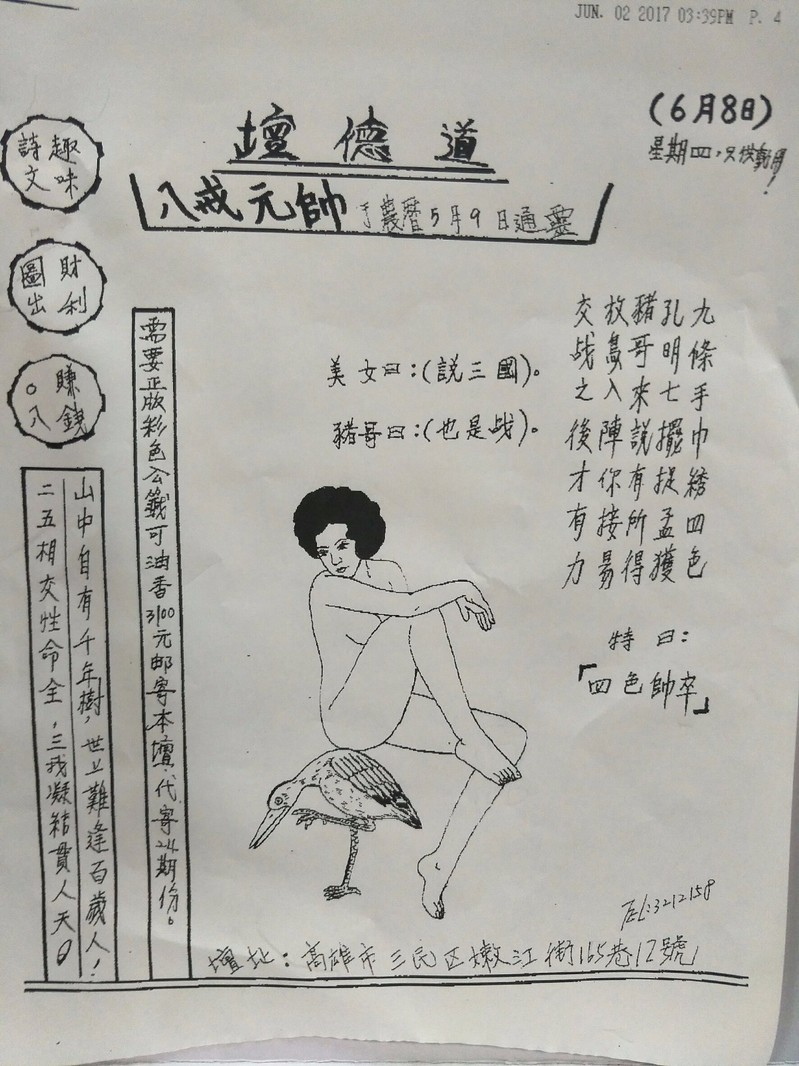 JUN. 02 2017 03:39PM P. 4
(6月8日)
星期四,只供戲用!
壇德道
八戒元帥 于農曆5月9日通靈
趣味
詩文
財利
圖出
賺錢
。八
九條手巾綉四色
孔明七擺捉孟獲
豬哥來說有所得
放鳥入陣你接易
交战之後才有力
特曰:
「四色帥卒」
美女曰:(說三國)。
豬哥曰:(也是战)。
需要正版彩色公籤可油香3100元邮寄本壇.代寄24期份。
山中自有千年樹,世上難逢百歲人!
二五相交性命全,三我凝結貫人天。
TEL:3212158
壇址:高雄市三民区嫩江街165巷12號